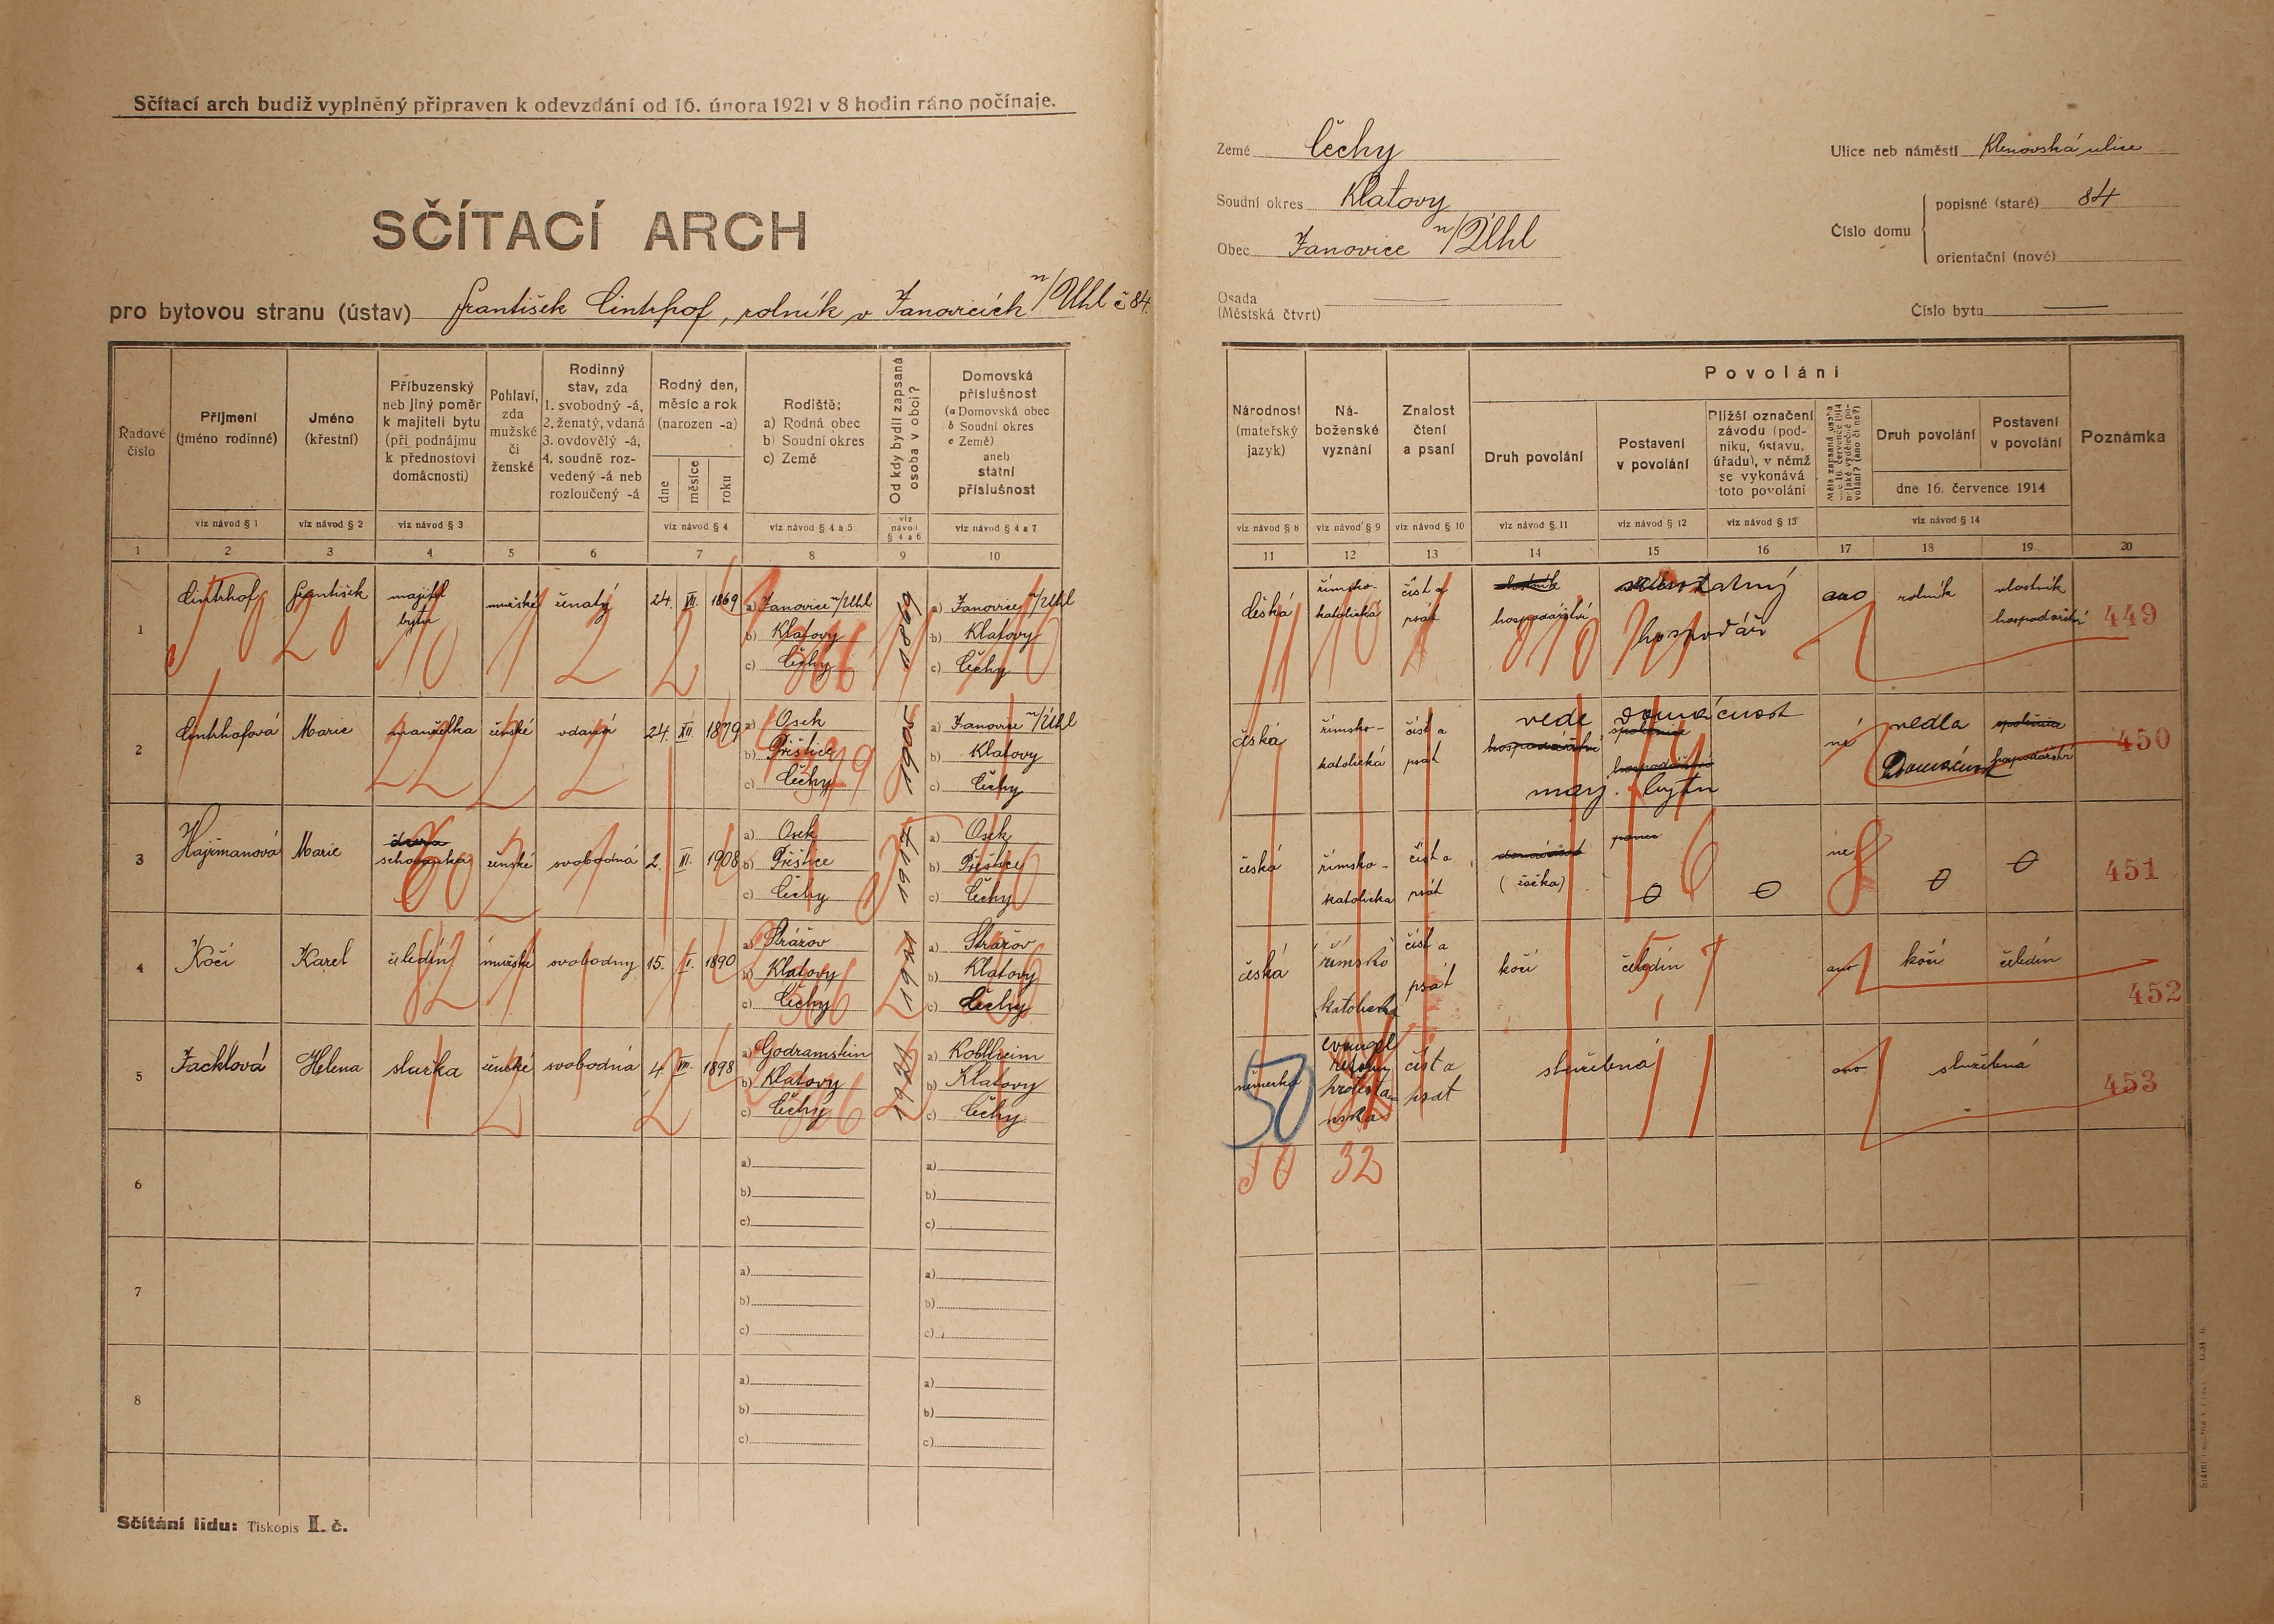 Sčítací arch budiž vyplněný připraven k odevzdání od 16. února 1921 v 8 hodin ráno počínaje.
SČÍTACÍ ARCH
pro bytovou stranu (ústav) František Cintrhof, rolník v Janovicích n/Uhl č 84.
Země Čechy
Soudní okres Klatovy
Obec Janovice n/Úhl
Osada
(Městská čtvrt)
Ulice neb náměstí Klenovská ulice
Číslo domu
popisné (staré) 84
orientační (nové)
Číslo bytu
Řadové číslo
Příjmení (jméno rodinné)
viz návod § 1
Jméno (křestní)
viz návod § 2
Příbuzenský neb jiný poměr k majiteli bytu (při podnájmu k přednostovi domácnosti)
viz návod § 3
Pohlaví, zda mužské či ženské
Rodinný stav, zda 1. svobodný -á, 2. ženatý, vdaná 3. ovdovělý -á, 4. soudně rozvedený -á neb rozloučený -á
Rodný den, měsíc a rok (narozen -a)
dne měsíce roku
viz návod § 4
Rodiště: a) Rodná obec b) Soudní okres c) Země
viz návod § 4 a 5
Od kdy bydlí zapsaná osoba v obci?
viz návod § 4 a 6
Domovská příslušnost (a Domovská obec b Soudní okres c Země) aneb státní příslušnost
viz návod § 4 a 7
1 2 3 4 5 6 7 8 9 10
1 Cintrhof František majitel bytu mužské ženatý 24. VII. 1869
a) Janovice n/Uhl
b) Klatovy
c) Čechy
1869
a) Janovice n/Uhl
b) Klatovy
c) Čechy
2 Cintrhofová Marie manželka ženské vdaná 24. XII 1879
a) Osek
b) Přeštice
c) Čechy
1905
a) Janovice n/Úhl
b) Klatovy
c) Čechy
3 Hajšmanová Marie schovanka ženské svobodná 2. III. 1908
a) Osek
b) Přeštice
c) Čechy
1917
a) Osek
b) Přeštice
c) Čechy
4 Kočí Karel čeledín mužské svobodný 15. I. 1890
a) Strážov
b) Klatovy
c) Čechy
1921
a) Strážov
b) Klatovy
c) Čechy
5 Jacklová Helena služka ženské svobodná 4. VII. 1898
b) Klatovy
c) Čechy
1921
b) Klatovy
c) Čechy
6
a)
b)
c)
a)
b)
c)
7
a)
b)
c)
a)
b)
c)
8
a)
b)
c)
a)
b)
c)
Sčítání lidu: Tiskopis II. č.
Národnost (mateřský jazyk)
viz návod § 8
Náboženské vyznání
viz návod § 9
Znalost čtení a psaní
viz návod § 10
Povolání
Druh povolání
viz návod § 11
Postavení v povolání
viz návod § 12
Bližší označení závodu (podniku, ústavu, úřadu), v němž se vykonává toto povolání
viz návod § 13
Měla zapsaná osoba dne 16. července 1914 nějaké výdělečné povolání? (ano či ne?)
Druh povolání
Postavení v povolání
dne 16. července 1914
viz návod § 14
Poznámka
11 12 13 14 15 16 17 18 19 20
česká římsko-katolická číst a psát hospodářství samostatný hospodář ano rolník vlastník hospodářství 449
česká římsko-katolická číst a psát vede domácnost maj. bytu ne vedla domácnost 450
česká římsko-katolická číst a psát (žačka) 0 0 ne 0 0 451
česká římsko katolická číst a psát kočí čeledín ano kočí čeledín 452
německá číst a psát služebná ano služebná 453
50
50 32